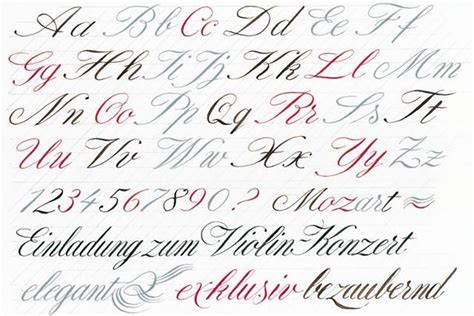 Aa Bb Cc Dd Ee Ff
Gg Hh Ii Jj Kk Ll Mm
Nn Oo Pp Qq Rr Ss Tt
Uu Vv Ww Xx Yy Zz
1234567890? Mozart
Einladung zum Violin-Konzert
elegant & exklusiv bezaubernd